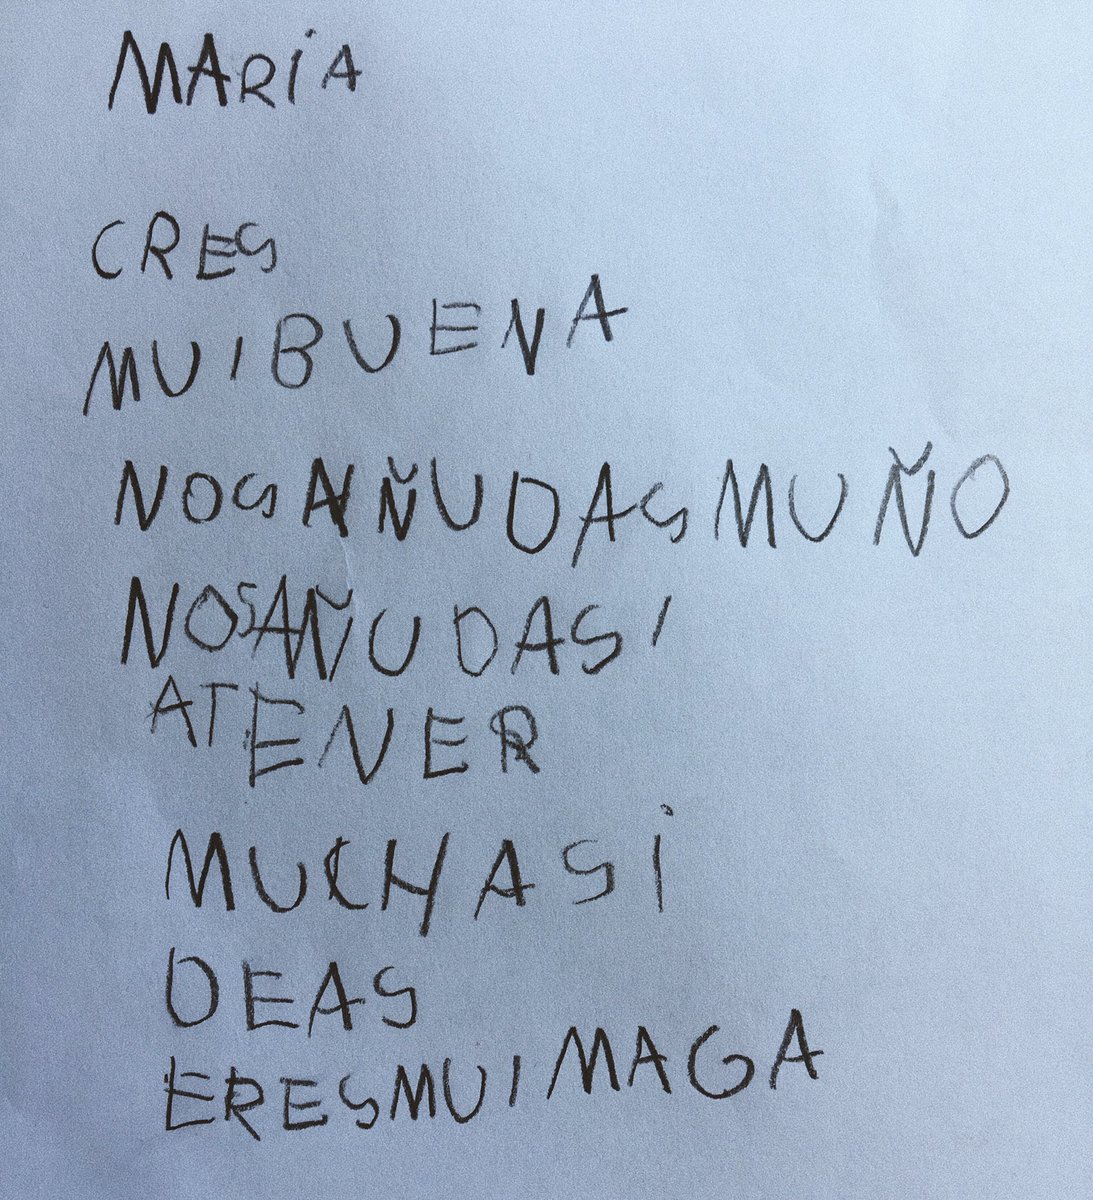 MARíA
CRES
MUIBUENA
NOSAÑUDASMUÑO
NOSAÑUDASI
ATENER
MUCHASi
DEAS
ERESMUIMAGA